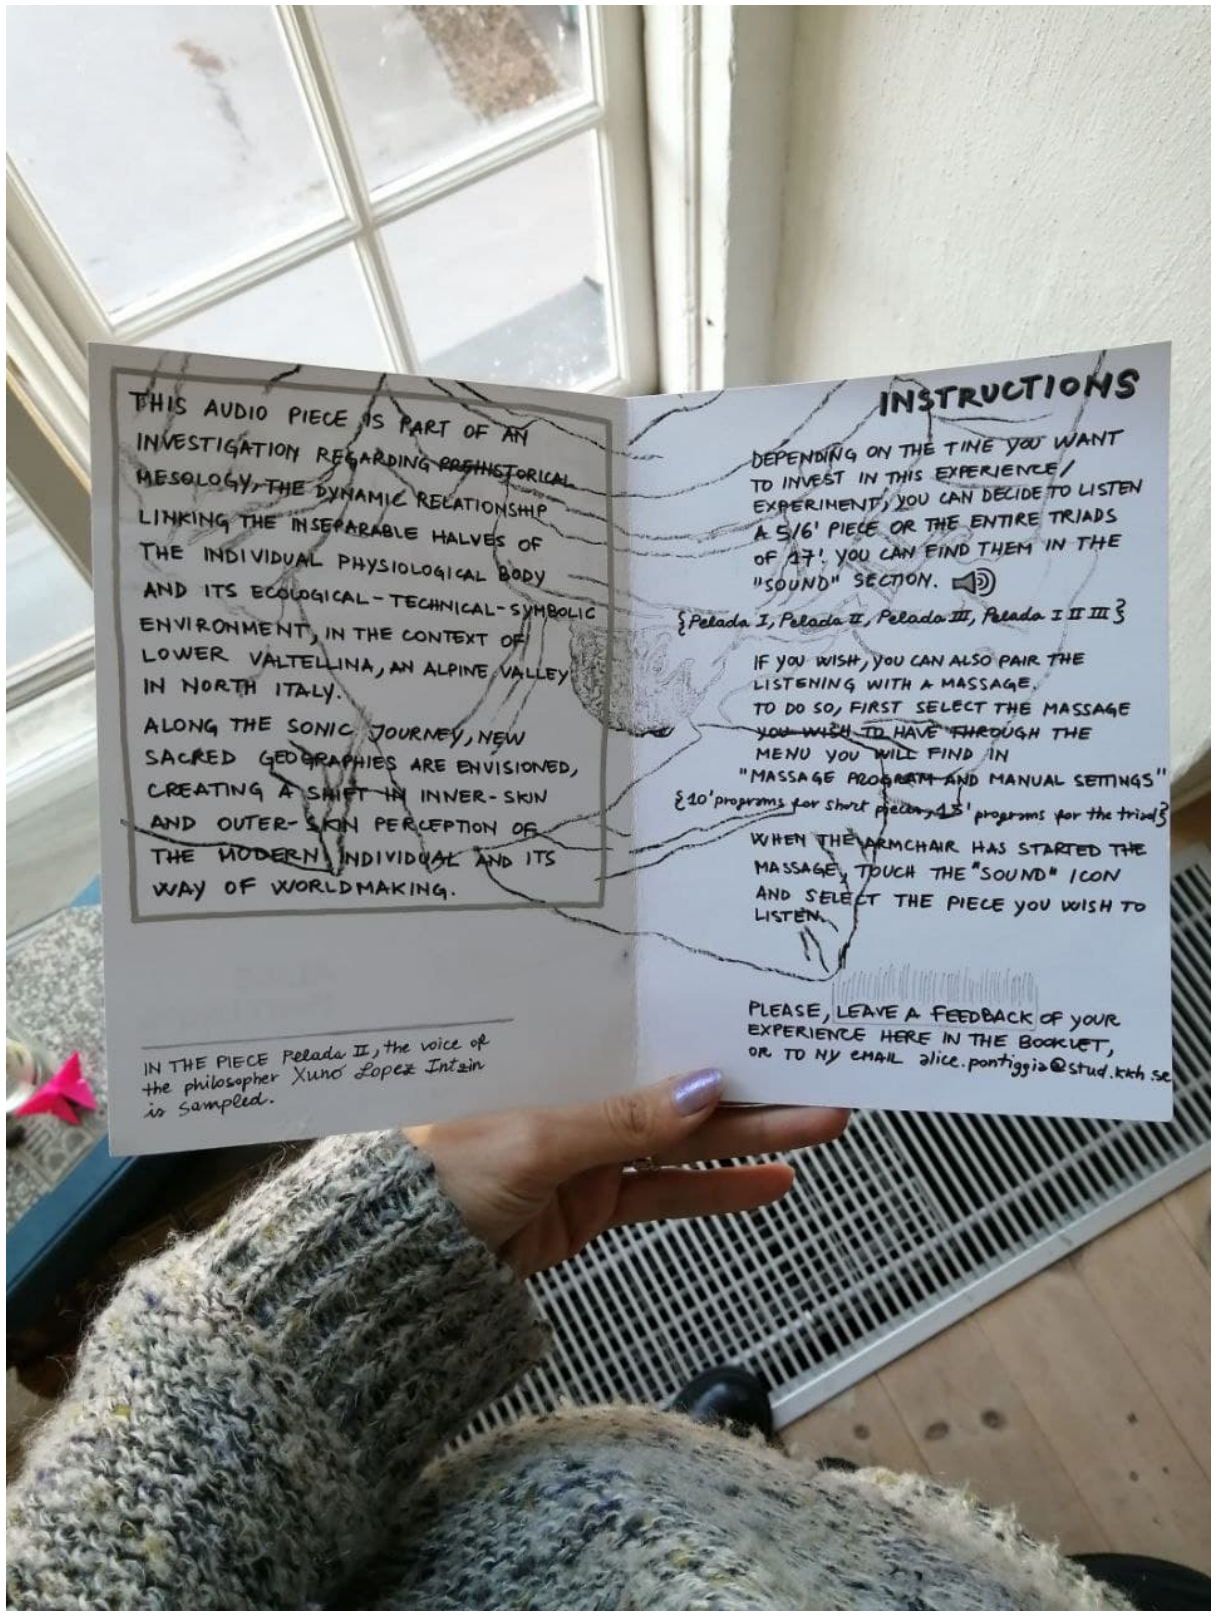 THIS AUDIO PIECE IS PART OF AN
INVESTIGATION REGARDING PREHISTORICAL
MESOLOGY, THE DYNAMIC RELATIONSHIP
LINKING THE INSEPARABLE HALVES OF
THE INDIVIDUAL PHYSIOLOGICAL BODY
AND ITS ECOLOGICAL-TECHNICAL-SYMBOLIC
ENVIRONMENT, IN THE CONTEXT OF
LOWER VALTELLINA, AN ALPINE VALLEY
IN NORTH ITALY.
ALONG THE SONIC JOURNEY, NEW
SACRED GEOGRAPHIES ARE ENVISIONED,
CREATING A SHIFT IN INNER-SKIN
AND OUTER-SKIN PERCEPTION OF
THE MODERN INDIVIDUAL AND ITS
WAY OF WORLDMAKING.
IN THE PIECE Pelada II, the voice of
the philosopher Xuno Lopez Intzin
is sampled.
INSTRUCTIONS
DEPENDING ON THE TINE YOU WANT
TO INVEST IN THIS EXPERIENCE/
EXPERIMENT, YOU CAN DECIDE TO LISTEN
A 5/6' PIECE OR THE ENTIRE TRIADS
OF 17'. YOU CAN FIND THEM IN THE
"SOUND" SECTION.
{Pelada I, Pelada II, Pelada III, Pelada I II III}
IF YOU WISH, YOU CAN ALSO PAIR THE
LISTENING WITH A MASSAGE.
TO DO SO, FIRST SELECT THE MASSAGE
YOU WISH TO HAVE THROUGH THE
MENU YOU WILL FIND IN
"MASSAGE PROGRAM AND MANUAL SETTINGS"
{10' programs for short pieces, 15' programs for the triad}
WHEN THE ARMCHAIR HAS STARTED THE
MASSAGE, TOUCH THE "SOUND" ICON
AND SELECT THE PIECE YOU WISH TO
LISTEN.
PLEASE, LEAVE A FEEDBACK OF YOUR
EXPERIENCE HERE IN THE BOOKLET,
OR TO NY EMAIL alice.pontiggia@stud.kkh.se